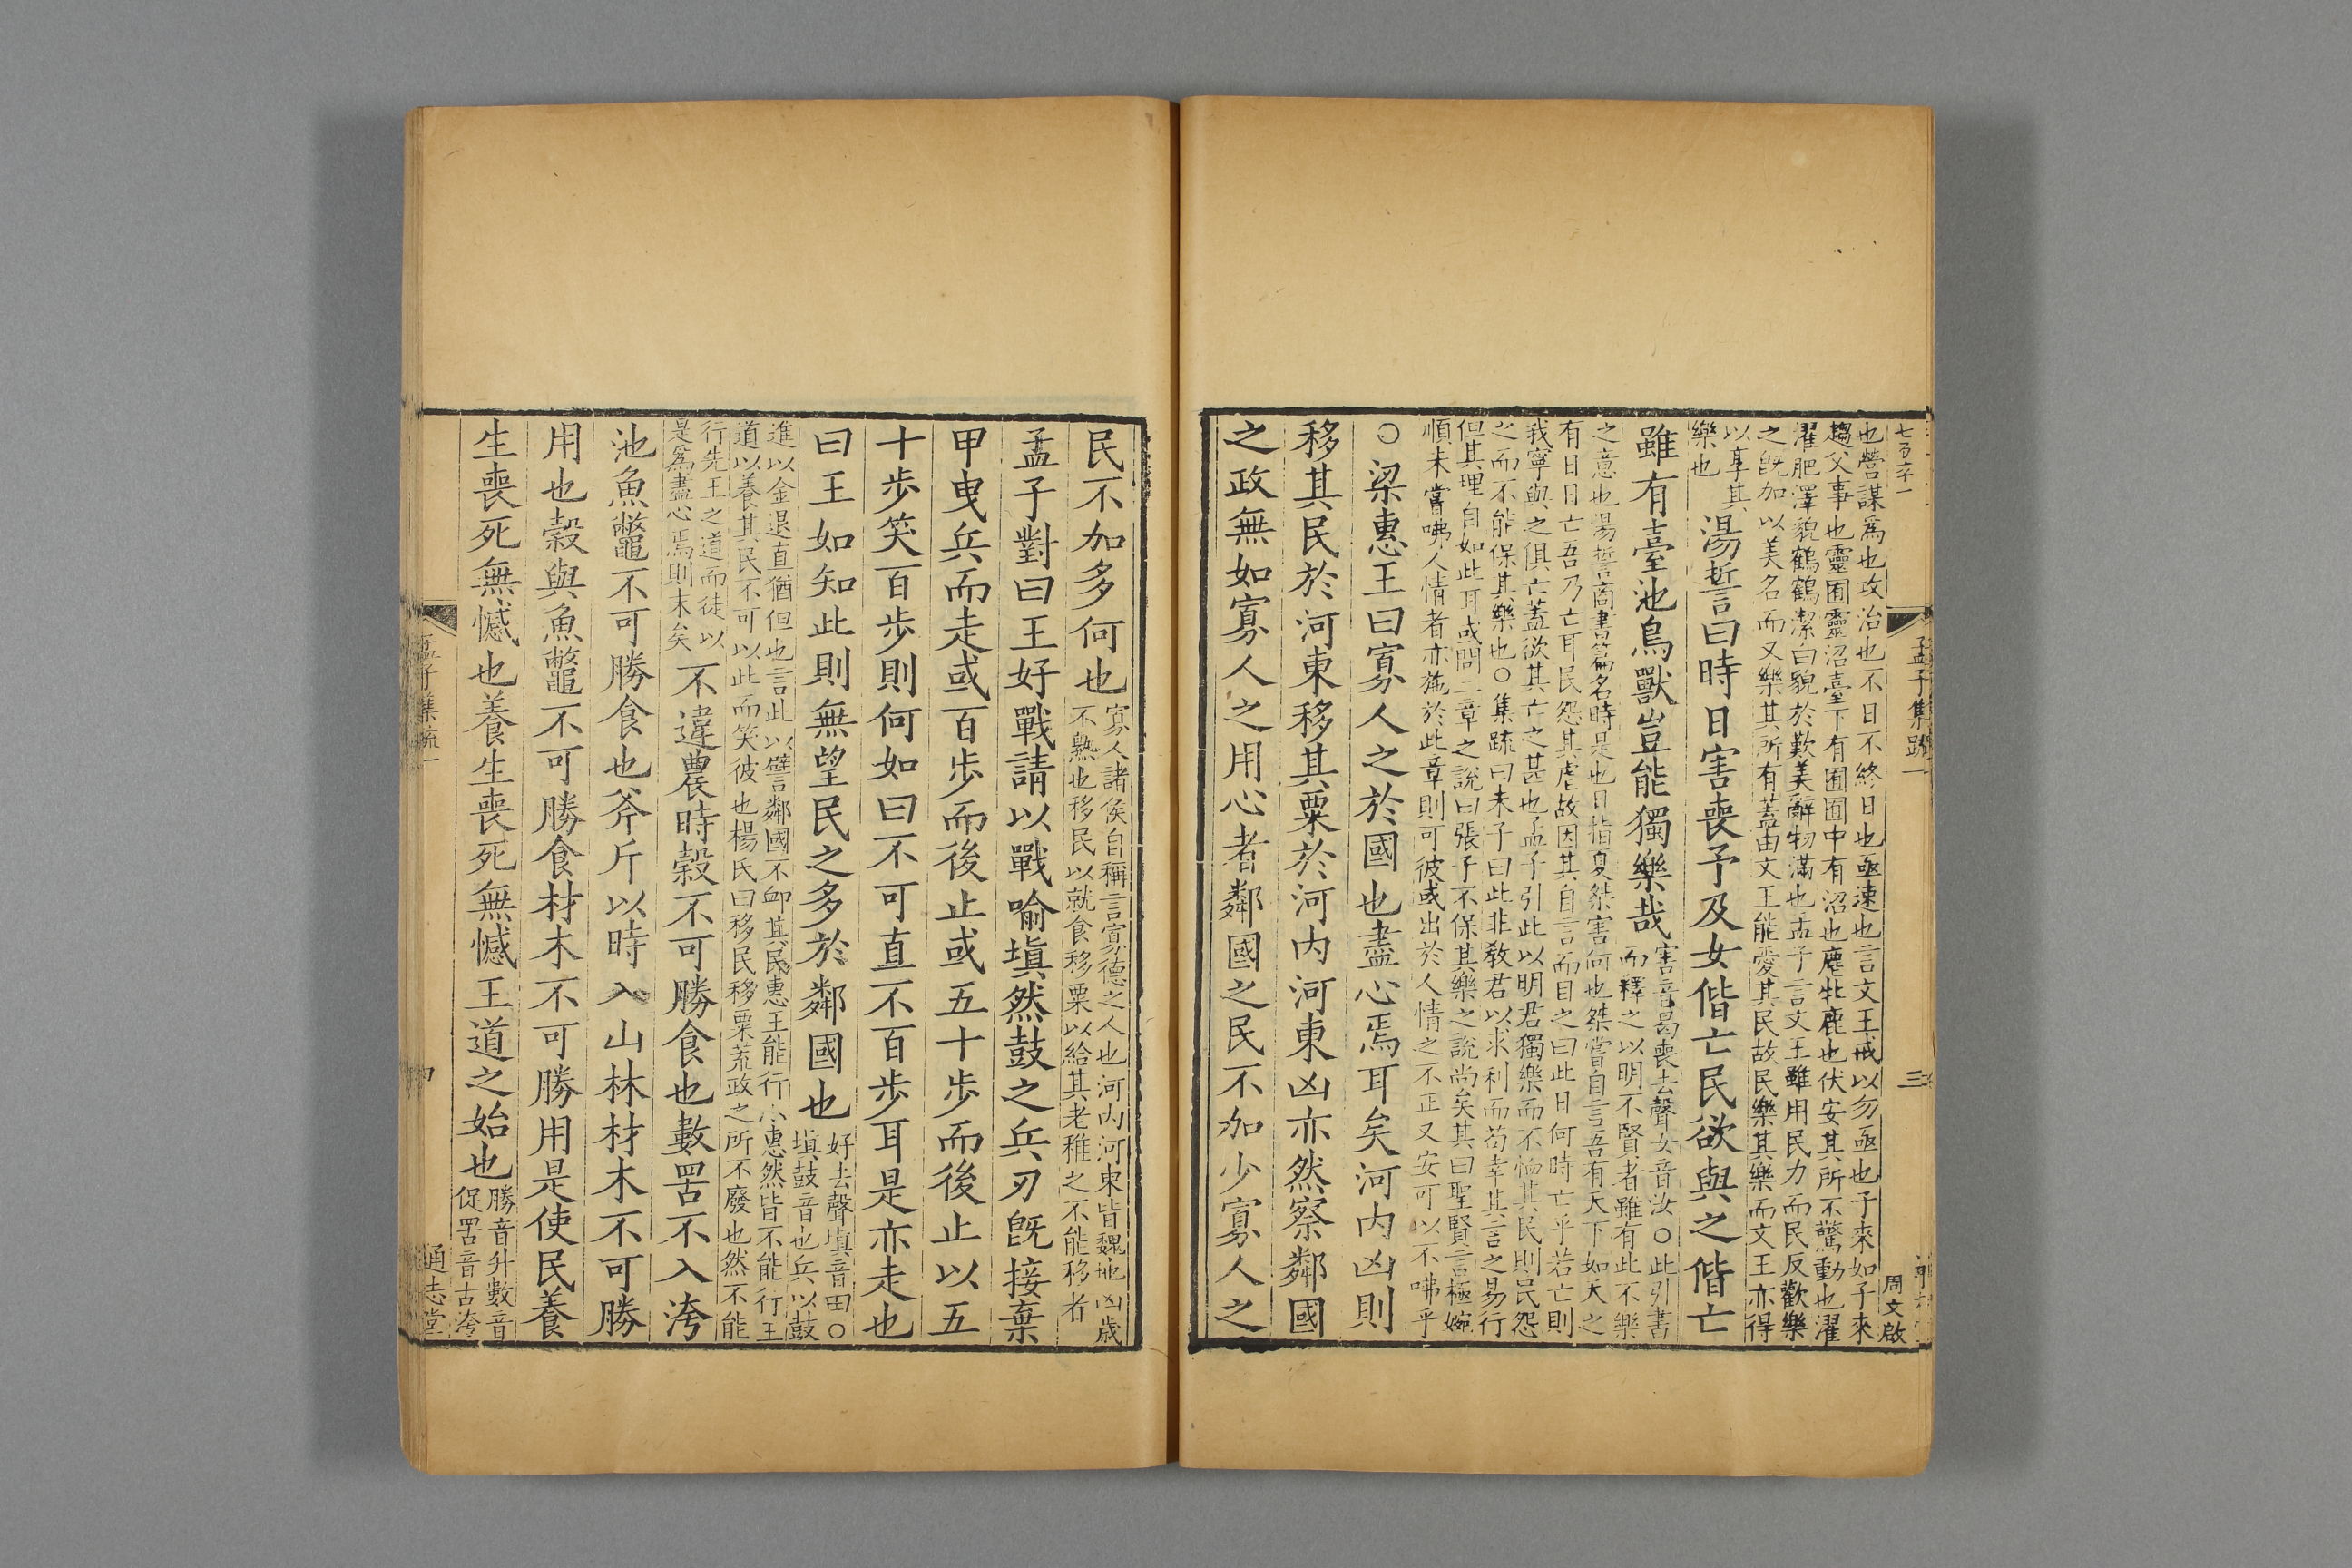 七百六十一
孟子集疏一
三
周文啟
也營謀爲也攻治也不日不終日也亟速也言文王戒以勿亟也子來如子來
趨父事也靈囿靈沼臺下有囿囿中有沼也麀牝鹿也伏安其所不驚動也濯
濯肥澤貌鶴鶴潔白貌於歎美辭物滿也孟子言文王雖用民力而民反歡樂
之旣加以美名而又樂其所有蓋由文王能愛其民故民樂其樂而文王亦得
以享其
樂也
湯誓曰時日害喪予及女偕亡民欲與之偕亡
雖有臺池鳥獸豈能獨樂哉
害音曷喪去聲女音汝○此引書
而釋之以明不賢者雖有此不樂
之意也湯誓商書篇名時是也日指夏桀害何也桀嘗自言吾有天下如天之
有日日亡吾乃亡耳民怨其虐故因其自言而目之曰此日何時亡乎若亡則
我寧與之俱亡蓋欲其亡之甚也孟子引此以明君獨樂而不恤其民則民怨
之而不能保其樂也○集疏曰朱子曰此非敎君以求利而苟幸其言之易行
但其理自如此耳或問二章之說曰張子不保其樂之說尚矣其曰聖賢言極婉
順未嘗咈人情者亦施於此章則可彼或出於人情之不正又安可以不咈乎
○梁惠王曰寡人之於國也盡心焉耳矣河內凶則
移其民於河東移其粟於河內河東凶亦然察鄰國
之政無如寡人之用心者鄰國之民不加少寡人之
民不加多何也
寡人諸侯自稱言寡德之人也河內河東皆魏地凶歲
不熟也移民以就食移粟以給其老稚之不能移者
孟子對曰王好戰請以戰喻塡然鼓之兵刃旣接棄
甲曳兵而走或百步而後止或五十步而後止以五
十步笑百步則何如曰不可直不百步耳是亦走也
曰王如知此則無望民之多於鄰國也
好去聲塡音田○
塡鼓音也兵以鼓
進以金退直猶但也言此以譬鄰國不卹其民惠王能行小惠然皆不能行王
道以養其民不可以此而笑彼也楊氏曰移民移粟荒政之所不廢也然不能
行先王之道而徒以
是爲盡心焉則末矣
不違農時穀不可勝食也數罟不入洿
池魚鼈不可勝食也斧斤以時入山林材木不可勝
用也穀與魚鼈不可勝食材木不可勝用是使民養
生喪死無憾也養生喪死無憾王道之始也
勝音升數音
促罟音古洿
孟子集疏一
四
通志堂